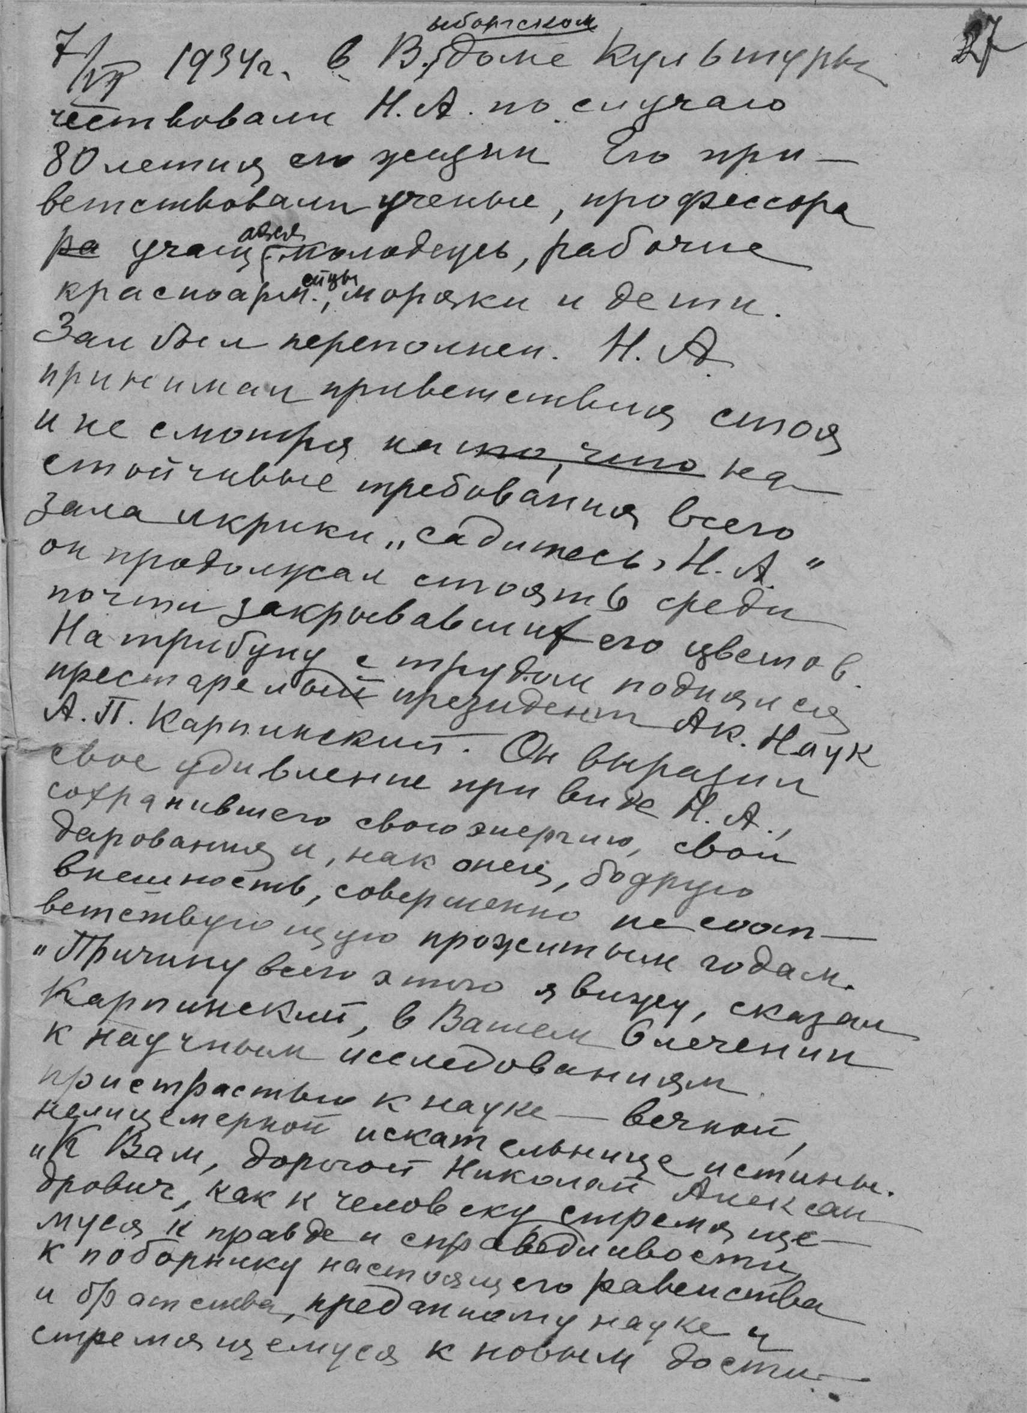 27
7/VII 1934г. в Выборгском доме Культуры
чествовали Н.А. по случаю
80 летия его жизни Его при-
ветствовали ученые, профессора
ра учащаяся молодежь, рабочие
красноармейцы, моряки и дети.
Зал был переполнен. Н.А.
принимал приветствия стоя
и не смотря на то, что на-
стойчивые требования всего
зала и крики „садитесь, Н.А."
он продолжал стоять среди
почти закрывавших его цветов.
На трибуну с трудом поднялся
престарелый президент Ак. Наук
А.П. Карпинский. Он выразил
свое удивление при виде Н.А.,
сохранившего свою энергию, свои
дарования и, наконец, бодрую
внешность, совершенно не соот-
ветствующую прожитым годам.
„Причину всего этого я вижу, сказал
Карпинский, в Вашем влечении
к научным исследованиям,
пристрастью к науке — вечной,
нелицемерной искательнице истины.
„К Вам, дорогой Николай Алексан-
дрович, как к человеку стремяще-
муся к правде и справедливости,
к поборнику настоящего равенства
и братства, преданному науке и
стремящемуся к новым дости-